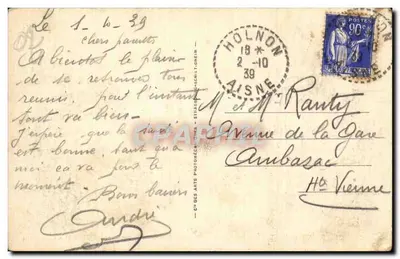 Le 1-10-39
chers parents
A bientôt le plaisir
de se retrouver tous
reunis, pour l'instant
tout va bien
J'espère que la santé
est bonne tant qu'à
moi ca va pour le
moment.
Bons baisers
André
HOLNON
18 *
2 -10
39
AISNE
POSTES
90c
M et Mme Ranty
Avenue de la Gare
Ambazac
Hte Vienne